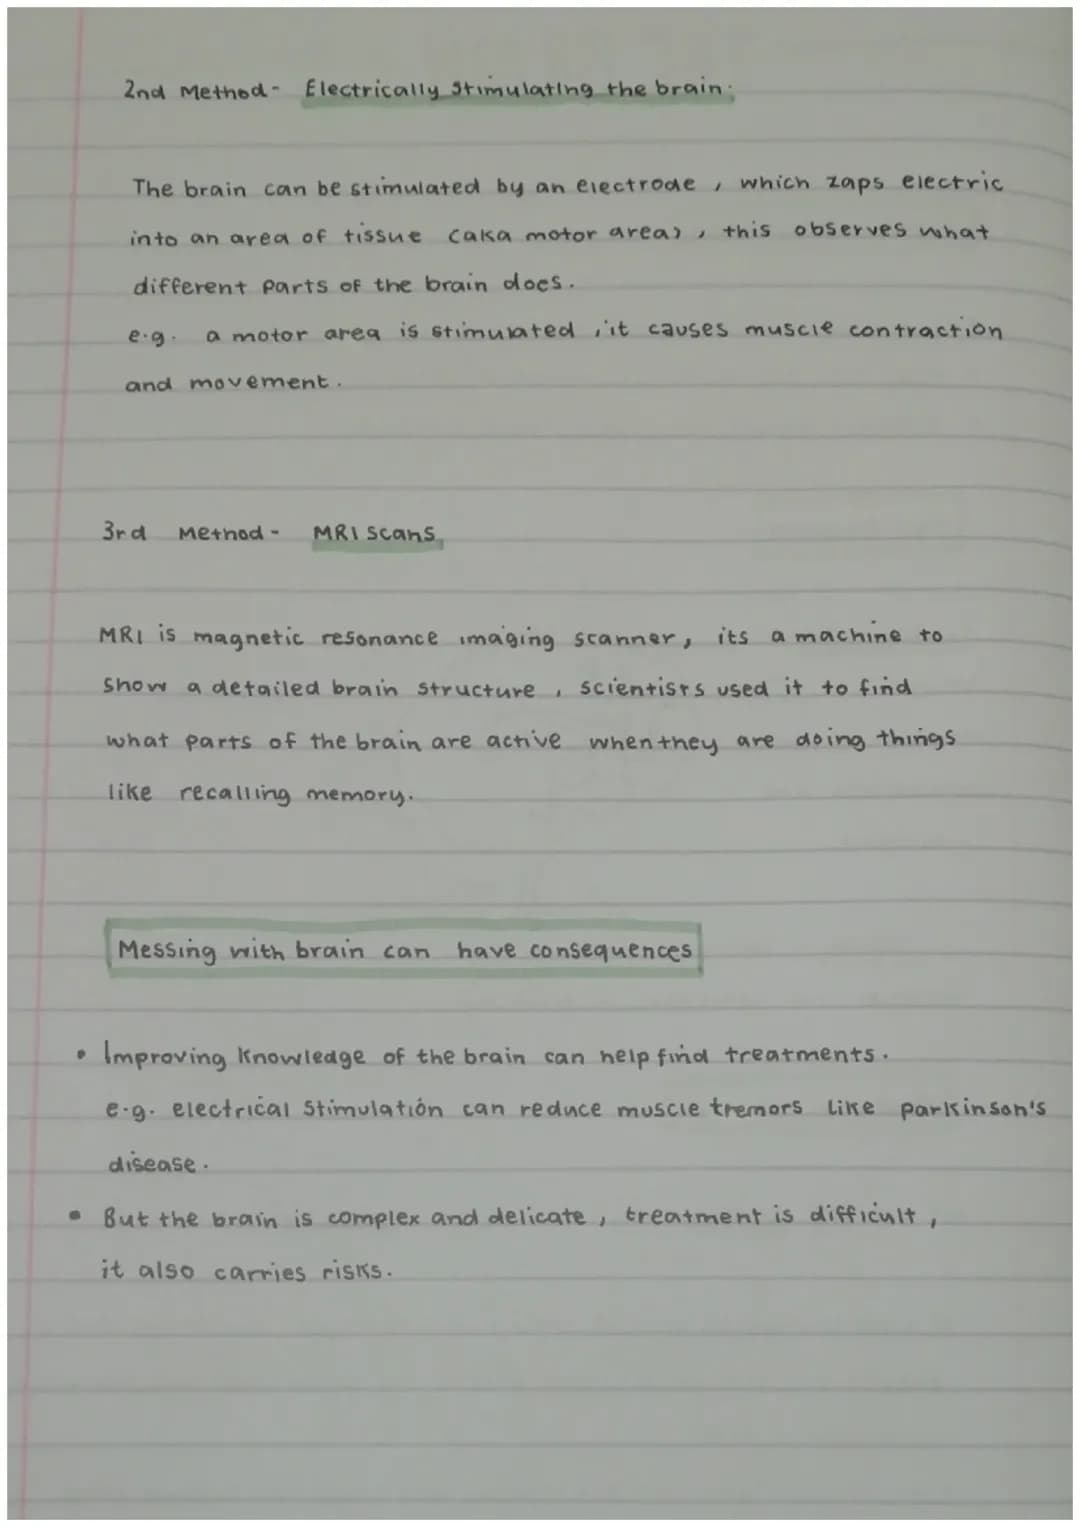 2nd Method - Electrically stimulating the brain.
The brain can be stimulated by an electrode, which zaps electric
into an area of tissue (aka motor area), this observes what
different parts of the brain does.
e.g. a motor area is stimulated, it causes muscle contraction
and movement.
3rd Method - MRI Scans
MRI is magnetic resonance imaging scanner, its a machine to
show a detailed brain structure, scientists used it to find
what parts of the brain are active when they are doing things
like recalling memory.
Messing with brain can have consequences
• Improving knowledge of the brain can help find treatments.
e.g. electrical stimulation can reduce muscle tremors like parkinson's
disease.
• But the brain is complex and delicate, treatment is difficult,
it also carries risks.